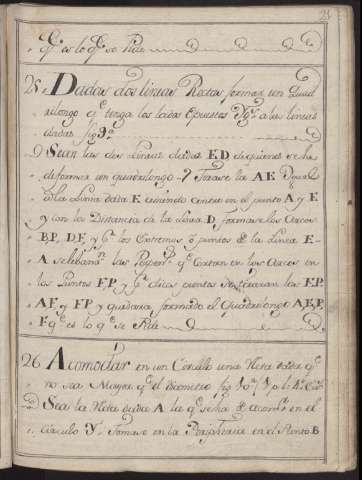 25
q.^e es lo q.^e se Pide
25. Dadas dos lineas Rectas formar un Quad
rilongo q.^e tenga los lados opuestos Yg.^s a las lineas
dadas fig 9.^a
Sean las dos Lineas dadas E D de quienes se ha
de formar un quadrilongo Tirase la A E Ygual
a la Linea data E haciendo centro en el punto A y E
y con la Distancia de la Linea D, formanse los Arcos
B P, D F, y q.^e los Extremos ô puntos de la Linea E
A selebanten las q.^e Cortan en los Arcos en
los Puntos F P, y q.^e dicos puntos se tiraran las F P
A F y E P y quedara formado el Quadrilongo A E P
F q.^e es lo q.^e se Pide
26 Acomodar en un Circulo una Recta dada q.^e
no sea Mayor q.^e el diametro fig 10.^a
Sea la Recta dada A la q.^e se ha de acomodar en el
Circulo Y. Tomase en la Periferia en el Punto B